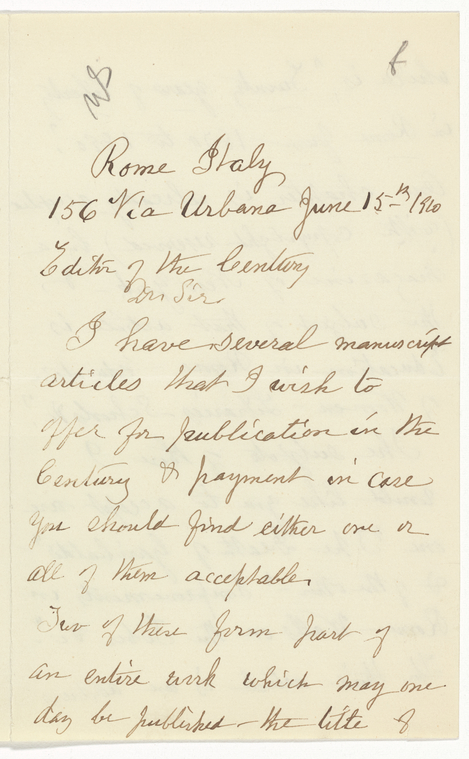 WS
f
Rome Italy
156 Via Urbana June 15th 1910
Editor of the Century
Dr Sir
I have several manuscript
articles that I wish to
offer for publication in the
Century & payment in case
you should find either one or
all of them acceptable.
Two of these form part of
an entire work which may one
day be published – the title of